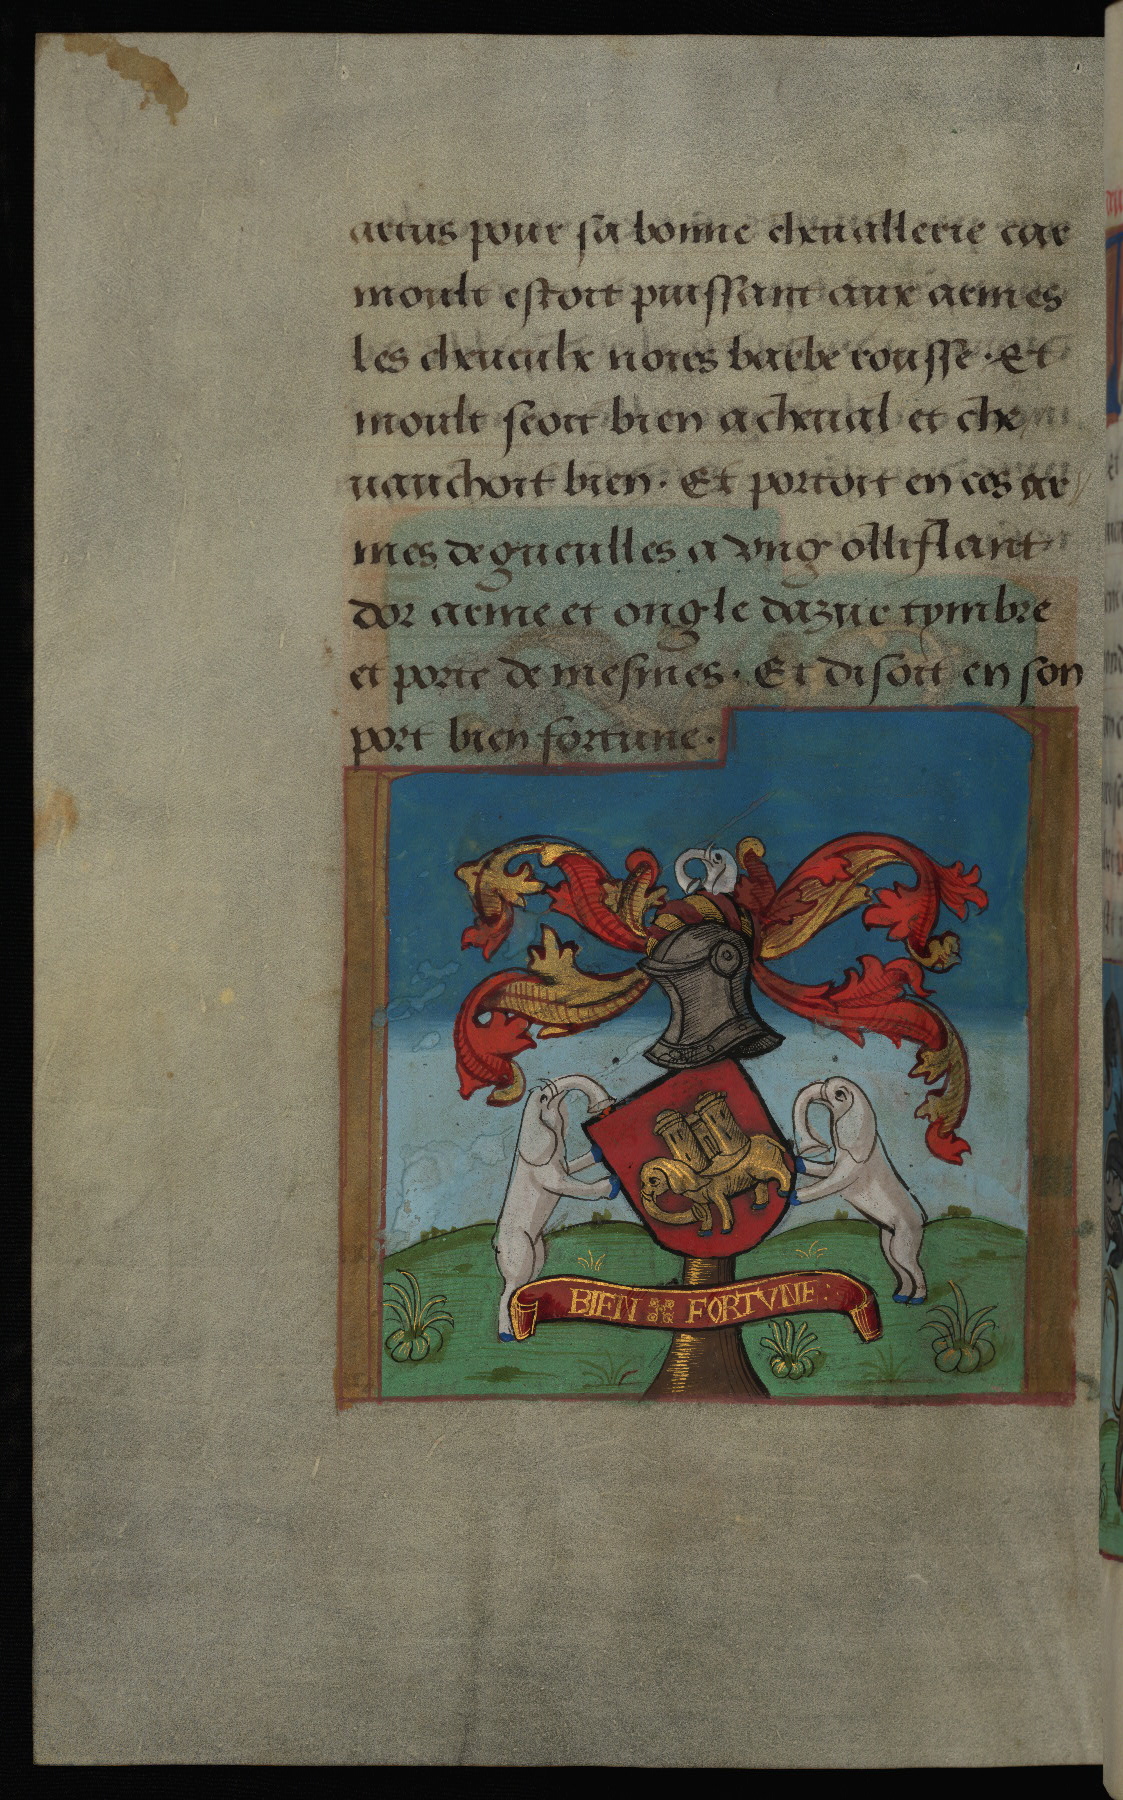 artus pour sa bonne cheuallerie car
moult estoit puissant aux armes
les cheueulx noirs barbe rousse · Et
moult seoit bien a cheual et che
uauchoit bien · Et portoit en ces ar
mes de gueulles a vng olliflant
dor arme et ongle dazur tymbre
et porte de mesmes · Et disoit en son
port bien fortune ·
BIEN FORTVNE